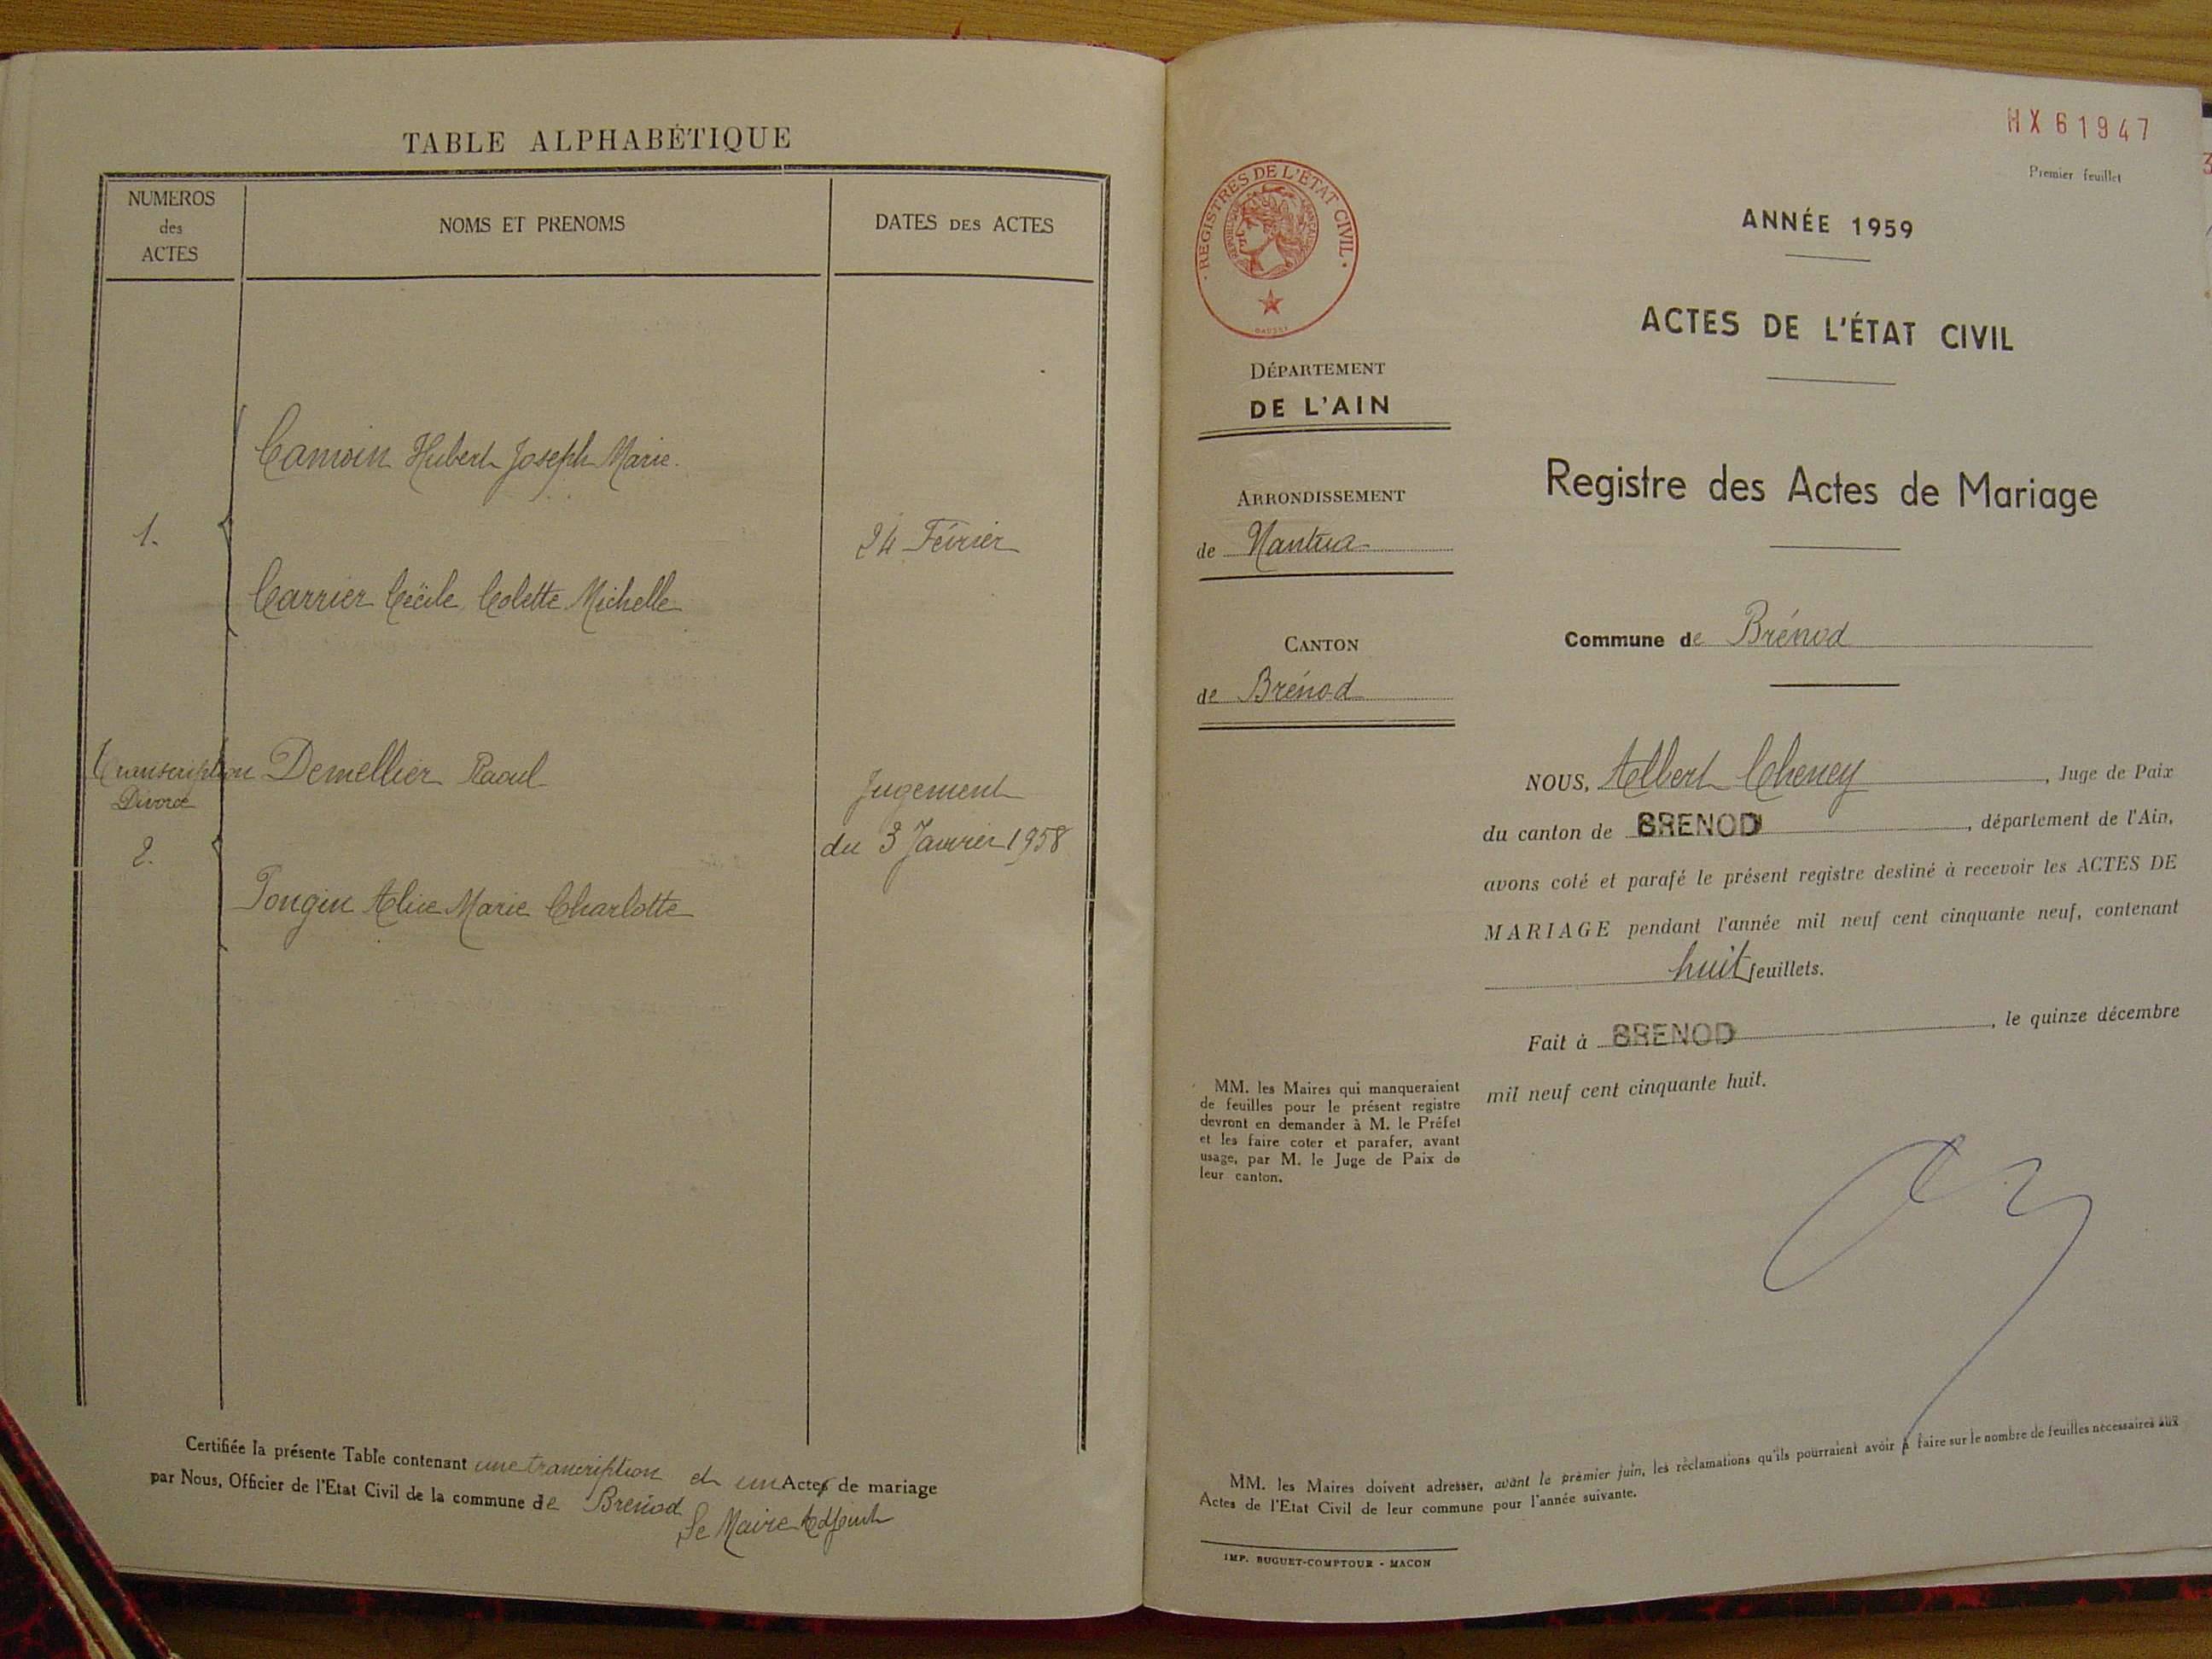 TABLE ALPHABÉTIQUE
NUMEROS
des
ACTES
NOMS ET PRENOMS
DATES DES ACTES
Camoin Hubert Joseph Marie.
1.
24 Février
Carrier Cécile Colette Michelle
Transcription
Divorce
2.
Demellier Raoul
Jugement
du 3 Janvier 1958
Alice Marie Charlotte
Certifiée la présente Table contenant une trancription et un Actes de mariage
par Nous, Officier de l'Etat Civil de la commune de Brénod
Le Maire Adjoint
HX 61947
3
Premier feuillet
REGISTRES DE L'ÉTAT CIVIL
RÉPUBLIQUE FRANÇAISE
ANNÉE 1959
ACTES DE L'ÉTAT CIVIL
DÉPARTEMENT
DE L'AIN
Registre des Actes de Mariage
ARRONDISSEMENT
de Nantua
Commune de Brénod
CANTON
de Brénod
NOUS, Albert Cheney, Juge de Paix
du canton de BRENOD, département de l'Ain,
avons coté et parafé le présent registre destiné à recevoir les ACTES DE
MARIAGE pendant l'année mil neuf cent cinquante neuf, contenant
huit feuillets.
Fait à BRENOD, le quinze décembre
mil neuf cent cinquante huit.
MM. les Maires qui manqueraient
de feuilles pour le présent registre
devront en demander à M. le Préfet
et les faire coter et parafer, avant
usage, par M. le Juge de Paix de
leur canton.
MM. les Maires doivent adresser, avant le premier juin, les réclamations qu'ils pourraient avoir à faire sur le nombre de feuilles nécessaires aux
Actes de l'Etat Civil de leur commune pour l'année suivante.
IMP. BUGUET-COMPTOUR - MACON